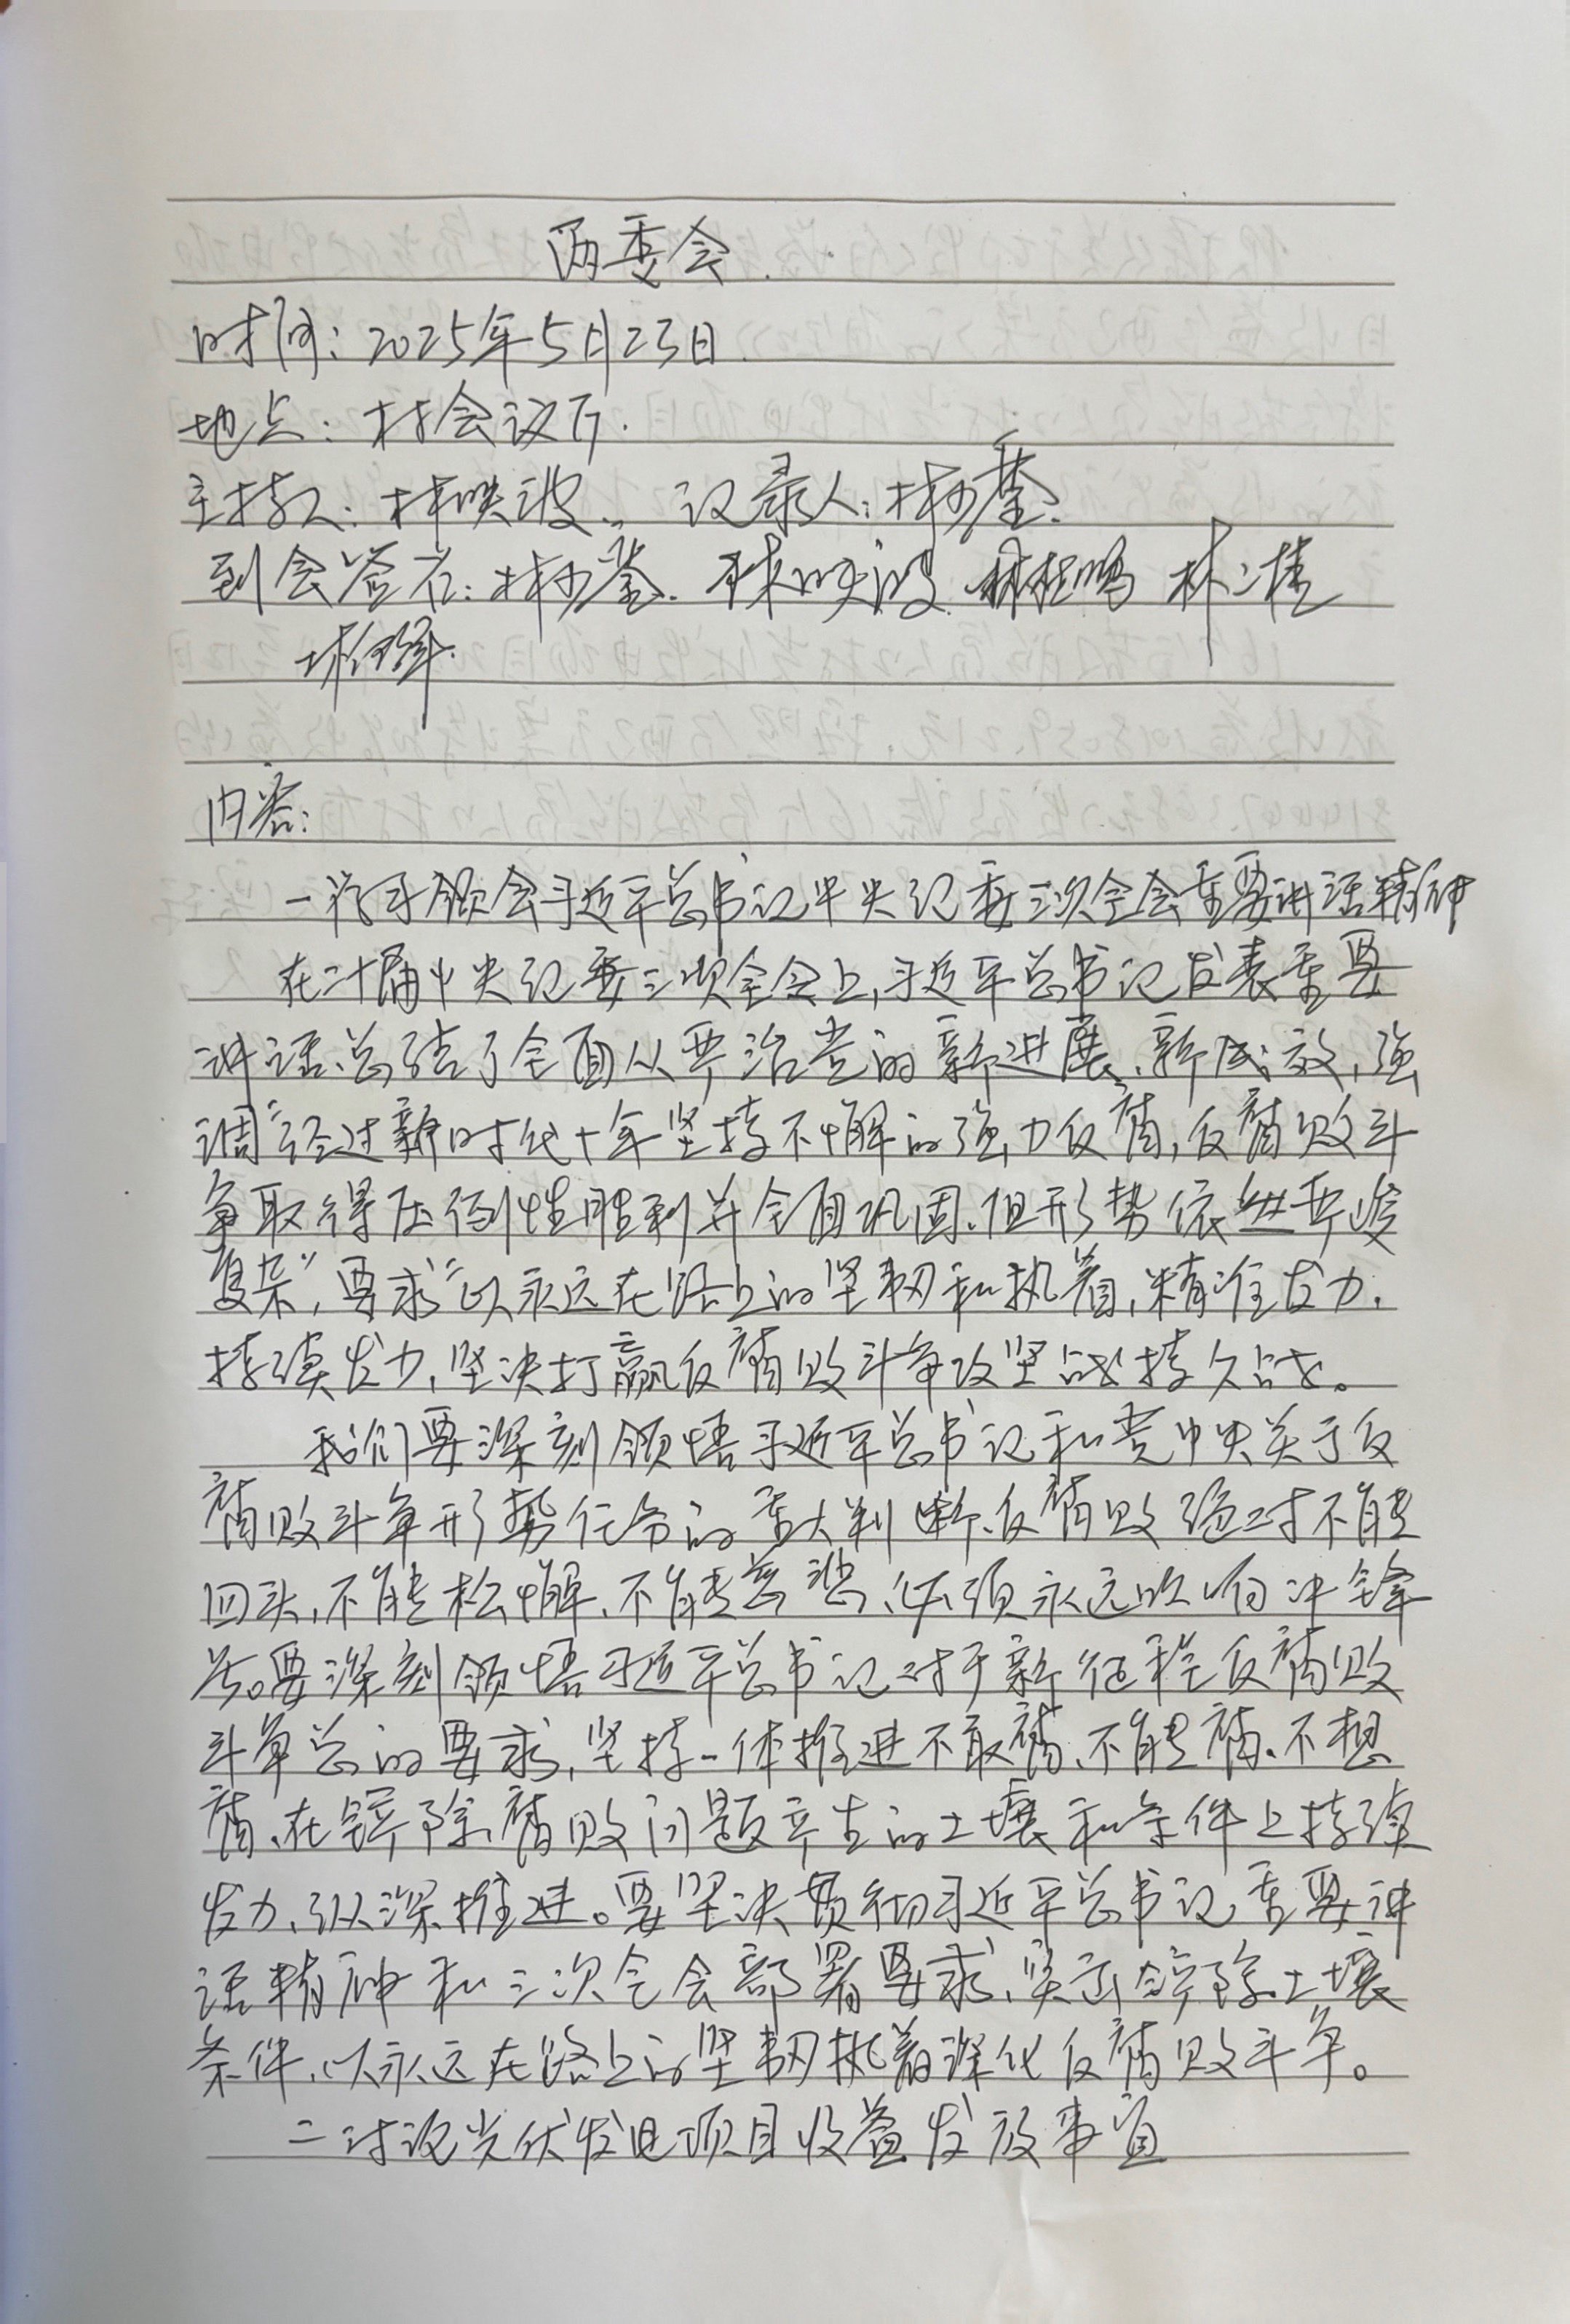 两委会
时间：2025年5月23日
地点：村会议厅.
主持人：林映波. 记录人：林少蓥.
到会签名：林少蓥. 林映波 林桂鸣 林二桂
内容：
一.学习领会习近平总书记中央纪委三次全会重要讲话精神
在二十届中央纪委三次全会上,习近平总书记发表重要
讲话、总结了全面从严治党的新进展、新成效,强
调“经过新时代十年坚持不懈的强力反腐,反腐败斗
争取得压倒性胜利并全面巩固、但形势依然严峻
复杂”,要求“以永远在路上的坚韧和执着,精准发力、
持续发力,坚决打赢反腐败斗争攻坚战持久战。
我们要深刻领悟习近平总书记和党中央关于反
腐败斗争形势任务的重大判断、反腐败绝对不能
回头、不能松懈、不能慈悲、必须永远吹响冲锋
号。要深刻领悟习近平总书记对于新征程反腐败
斗争总的要求,坚持一体推进不敢腐、不能腐、不想
腐、在铲除腐败问题产生的土壤和条件上持续
发力、纵深推进。要坚决贯彻习近平总书记重要讲
话精神和三次全会部署要求、突出铲除土壤
条件、以永远在路上的坚韧执着深化反腐败斗争。
二.讨论光伏发电项目收益发放事宜